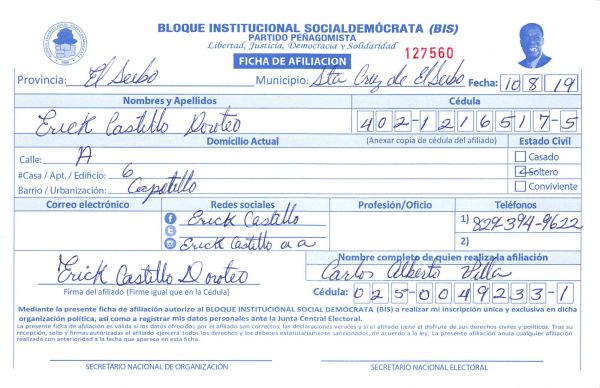 BLOQUE INSTITUCIONAL SOCIALDEMÓCRATA (BIS)
PARTIDO PEÑAGOMISTA
Libertad, Justicia, Democracia y Solidaridad
FICHA DE AFILIACION
127560
Provincia: El Seibo Municipio: Sta Cruz de El Seibo Fecha: 10 8 19
Nombres y Apellidos Cédula
Erick Castillo Doroteo 402-1216517-5
Domicilio Actual (Anexar copia de cédula del afiliado) Estado Civil
Calle: A Casado
#Casa / Apt. / Edificio: 6 Soltero
Barrio / Urbanización: Capotillo Conviviente
Correo electrónico Redes sociales Profesión/Oficio Teléfonos
Erick Castillo 1) 829-394-9622
Erick Castillo 2)
Nombre completo de quien realiza la afiliación
Erick Castillo Doroteo Carlos Alberto Villa
Firma del afiliado (Firme igual que en la Cédula) Cédula: 025-0049233-1
Mediante la presente ficha de afiliación autorizo al BLOQUE INSTITUCIONAL SOCIAL DEMÓCRATA (BIS) a realizar mi inscripción única y exclusiva en dicha
organización política, así como a registrar mis datos personales ante la Junta Central Electoral.
La presente ficha de afiliación es válida si los datos ofrecidos por el afiliado son correctos, las declaraciones veraces y si el afiliado tiene el disfrute de sus derechos civiles y políticos. Tras su
recepción, sello y firmas autorizadas el afiliado ejercerá todos los derechos y los deberes estatutariamente sancionados, de acuerdo a la ley. La presente afiliación anula cualquier afiliación
realizada con anterioridad a la fecha que aparece en esta ficha.
SECRETARIO NACIONAL DE ORGANIZACIÓN SECRETARIO NACIONAL ELECTORAL